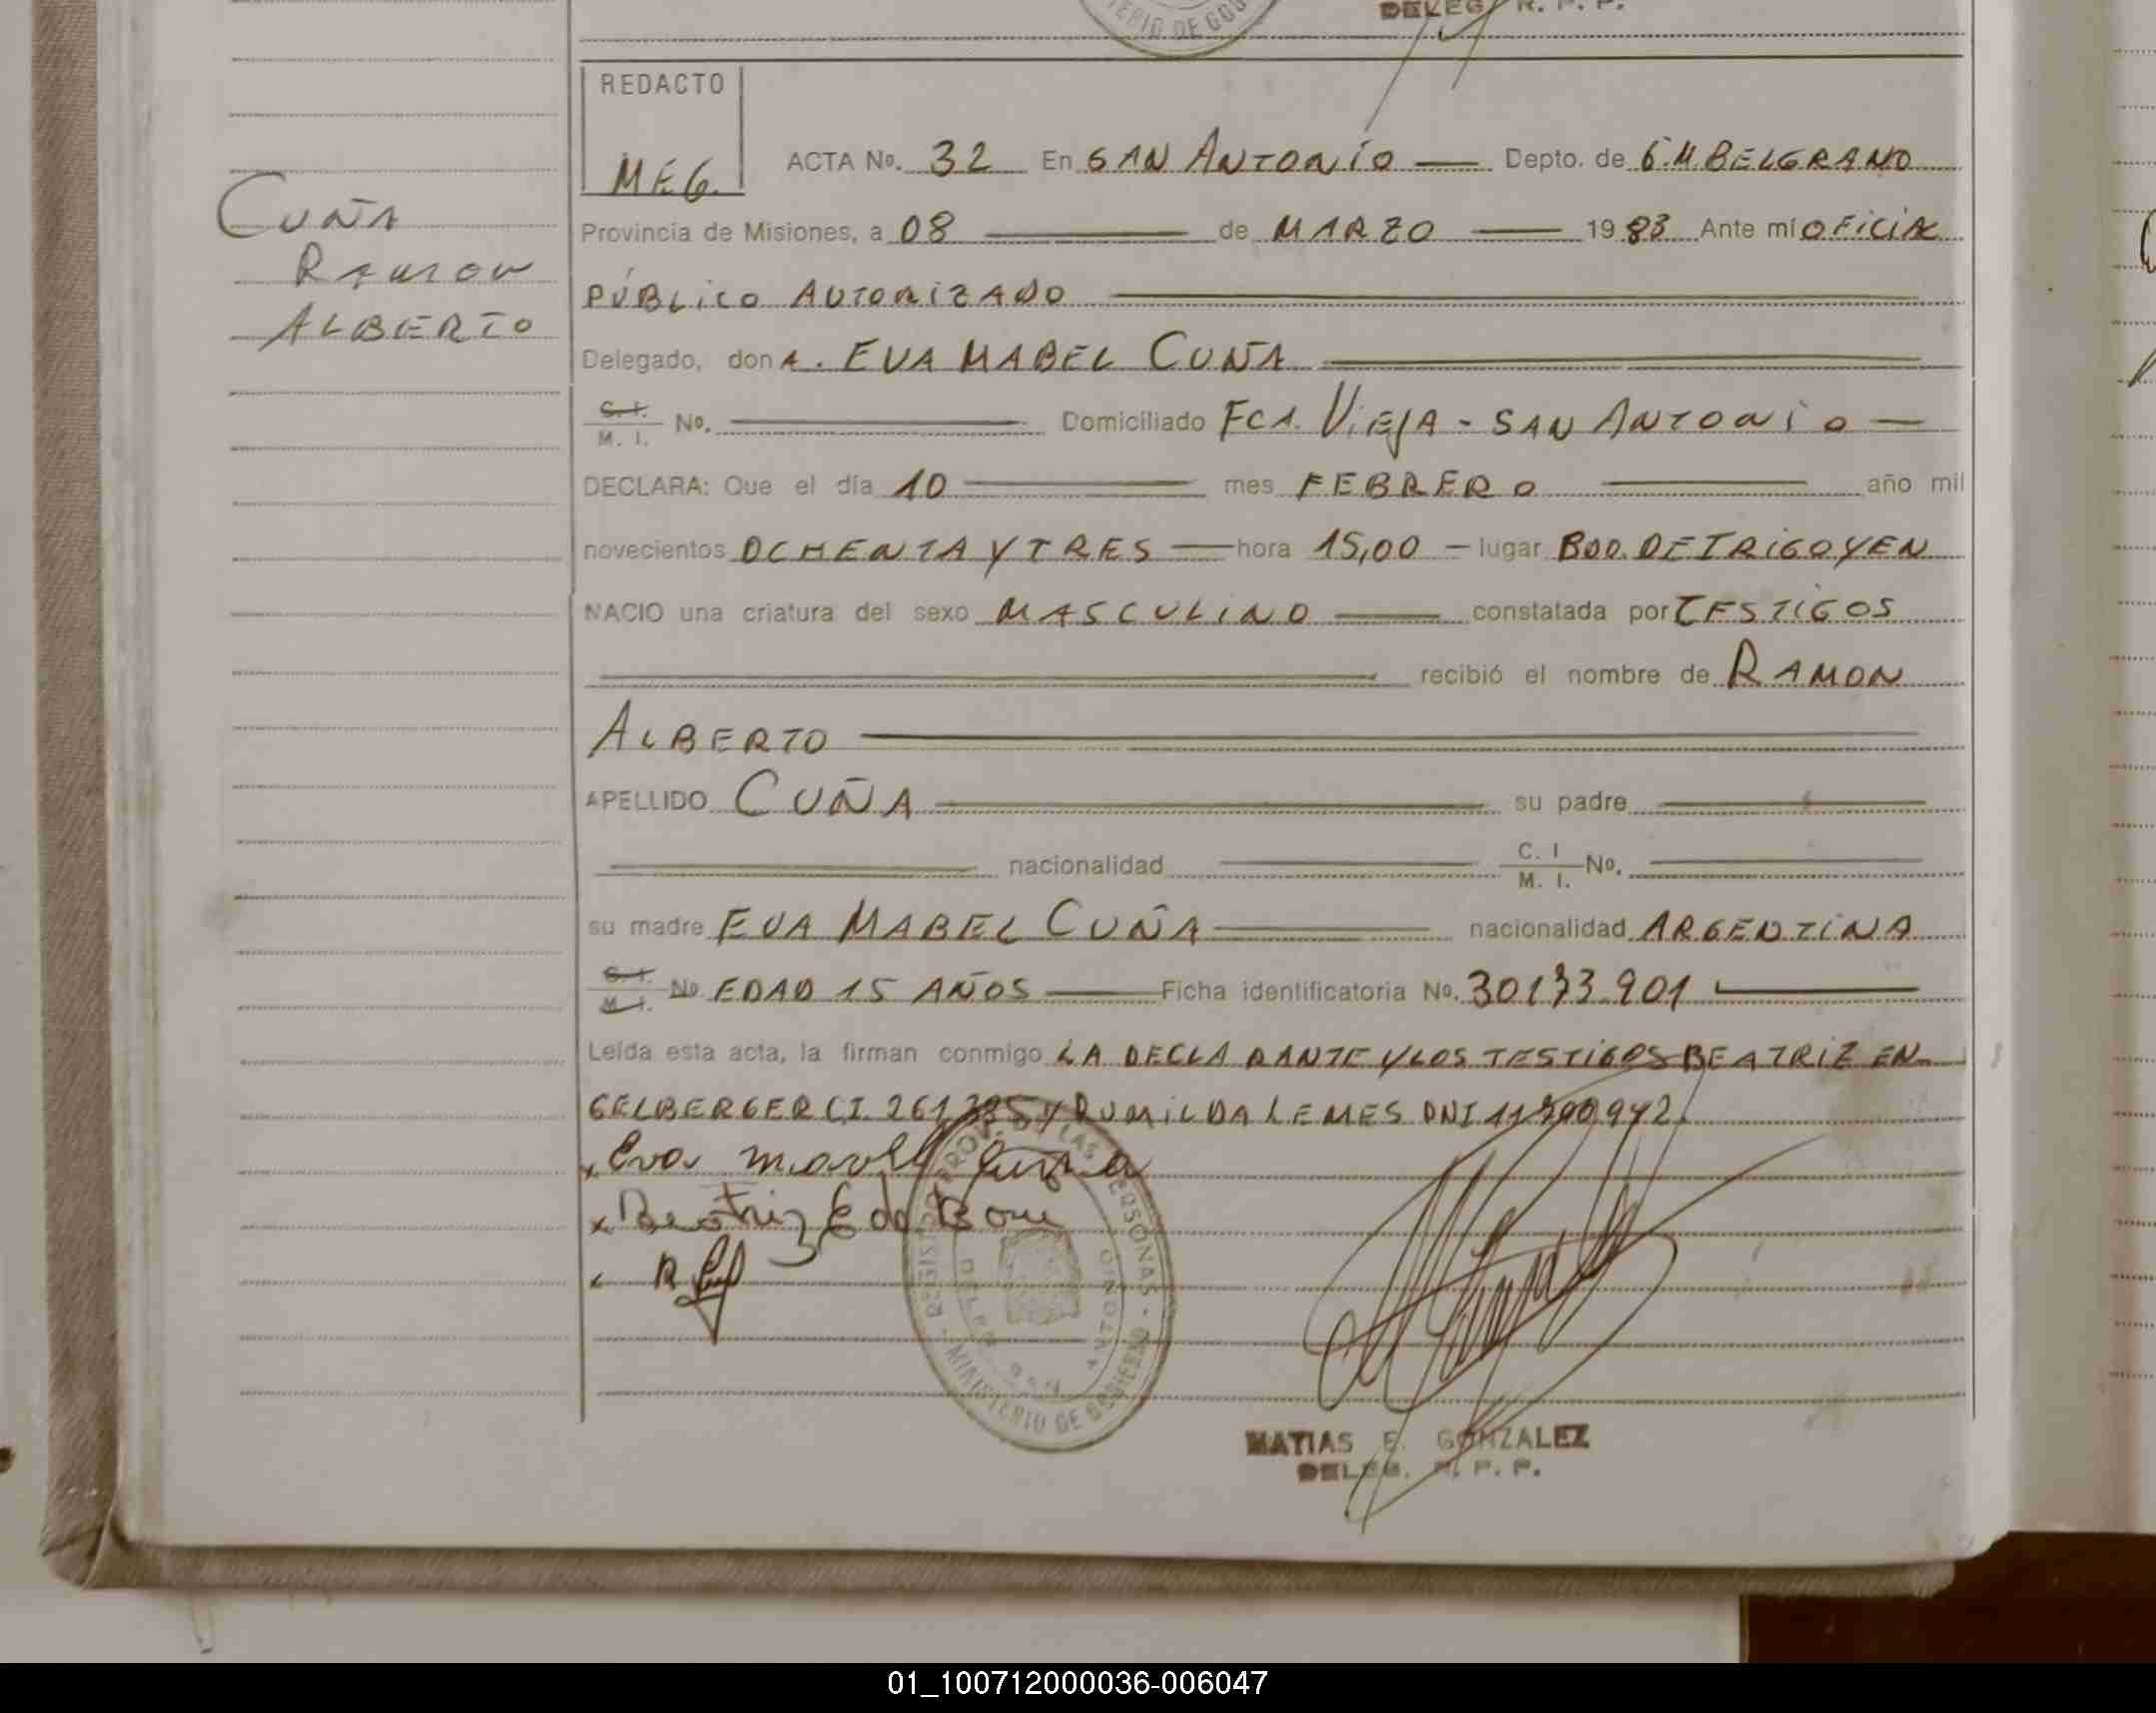 DELEG. R. P. P.
TERIO DE GOB
REDACTO
MEG.
ACTA No. 32 En SAN ANTONIO Depto. de G.M.BELGRANO
CUÑA
RAMON
ALBERTO
Provincia de Misiones, a 08 de MARZO 1983 Ante mí OFICIAL
PÚBLICO AUTORIZADO
Delegado, don A. EVA MABEL CUÑA
C. I. M. I. No. Domiciliado FCA. VIEJA - SAN ANTONIO
DECLARA: Que el día 10 mes FEBRERO año mil
novecientos OCHENTA Y TRES hora 15,00 - lugar BDO. DE IRIGOYEN
NACIO una criatura del sexo MASCULINO constatada por TESTIGOS
recibió el nombre de RAMON
ALBERTO
APELLIDO CUÑA su padre
nacionalidad C. I M. I. No.
su madre EVA MABEL CUÑA nacionalidad ARGENTINA
C. I. M. I. No EDAD 15 AÑOS Ficha identificatoria No. 30173.901
Leída esta acta, la firman conmigo LA DECLARANTE Y LOS TESTIGOS BEATRIZ EN
GELBERGER C.I. 261.385 Y RUMILDA LEMES DNI
x Eva mavel
x Beatriz Eda
REGISTRO PROV. DE LAS PERSONAS - MINISTERIO DE GOBIERNO
MATIAS E. GONZALEZ
DELEG. R. P. P.
01_100712000036-006047